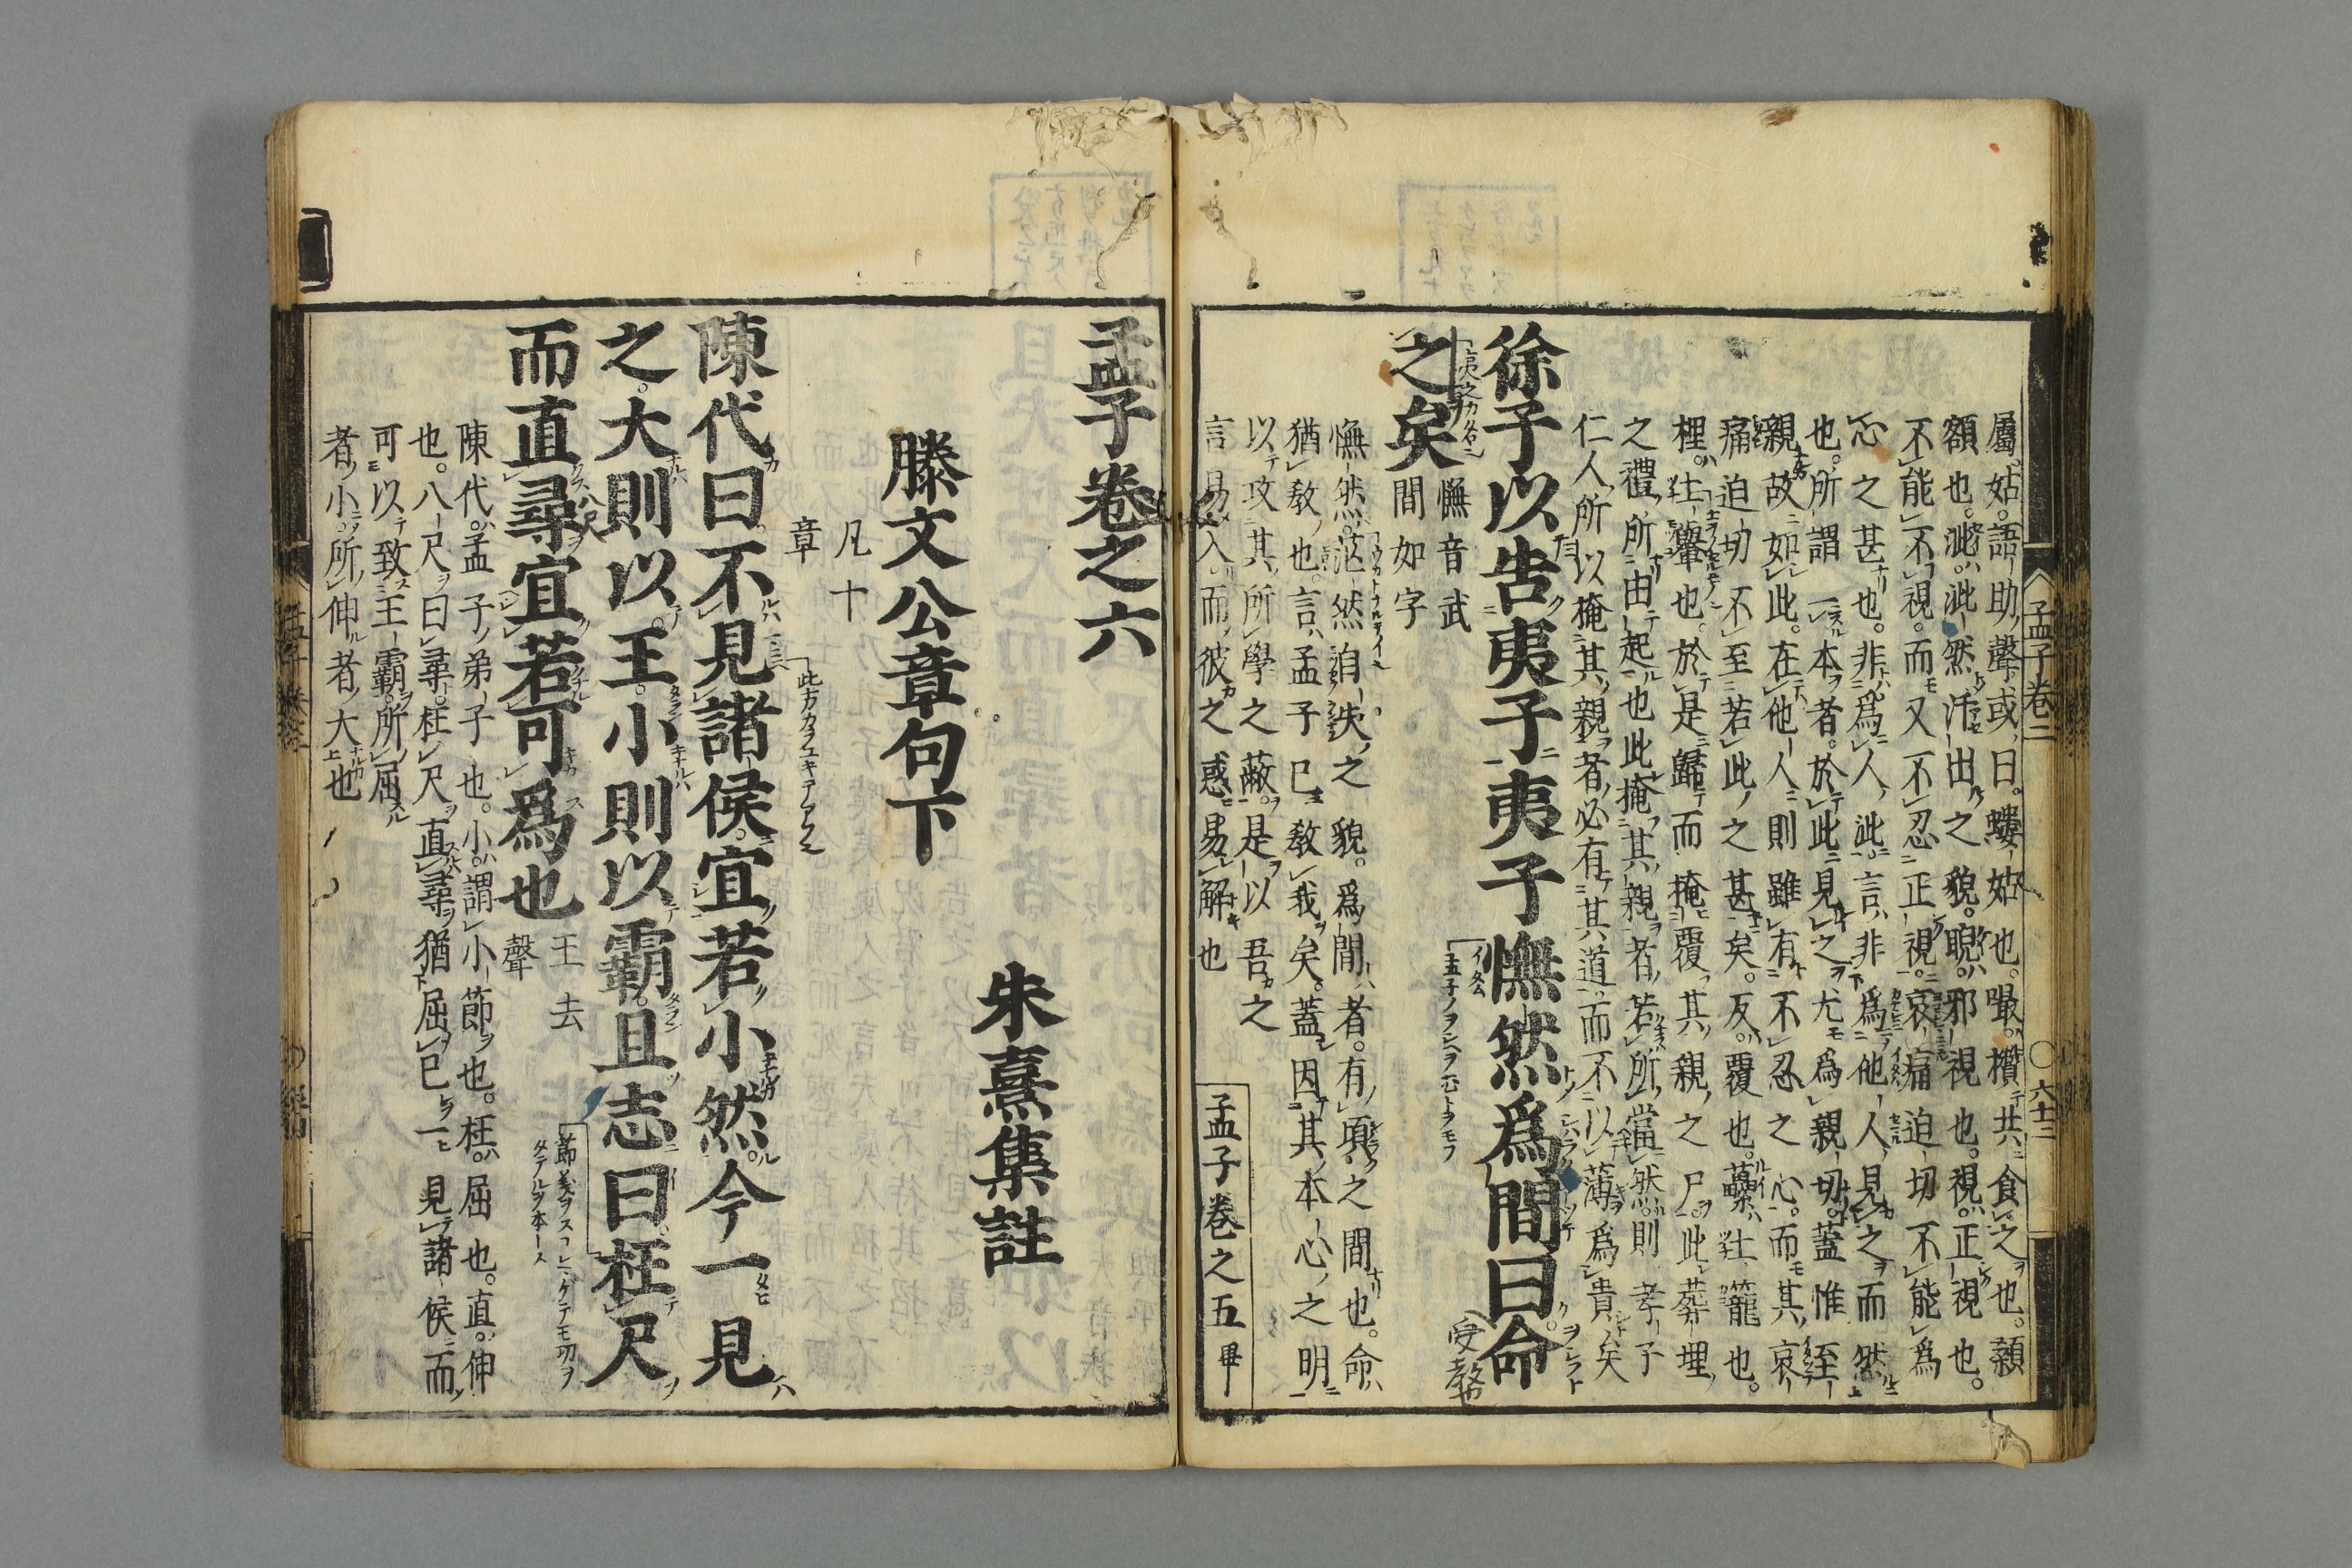 屬姑語助聲或曰螻蛄也嘬攢共食之也顙
額也泚泚然汗出之貌睨邪視也視正視也
不能不視而又不忍正視哀痛迫切不能爲
心之甚也非爲人泚言非爲他人見之而然
也所謂一本者於此見之尤爲親切蓋惟至
親故如此在他人則雖有不忍之心而其哀
痛迫切不至若此之甚矣反覆也虆土籠也
梩土轝也於是歸而掩覆其親之尸此葬埋
之禮所由起也此掩其親者若所當然則孝子
仁人所以掩其親者必有其道而不以薄爲貴矣
徐子以告夷子夷子憮然爲間曰命
之矣
憮音武
間如字
憮然茫然自失之貌爲間者有頃之間也命
猶教也言孟子已教我矣蓋因其本心之明
以攻其所學之蔽是以吾之
言易入而彼之惑易解也
孟子卷之五畢
孟子卷二
六十三
孟子卷之六
朱熹集註
滕文公章句下
凡十
章
陳代曰不見諸侯宜若小然今一見
之大則以王小則以霸且志曰枉尺
而直尋宜若可爲也
王去
聲
陳代孟子弟子也小謂小節也枉屈也直伸
也八尺曰尋枉尺直尋猶屈己一見諸侯而
可以致王霸所屈
者小所伸者大也